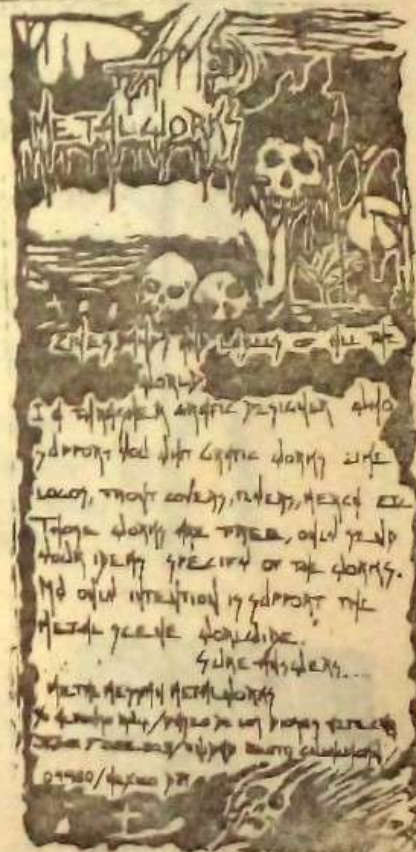 METALWORKS
ZINES AND LABELS OF ALL THE
WORLD
I'm THRASHER GRAFIC DESIGNER WHO
SUPPORT YOU WHIT GRAFIC WORKS LIKE
LOGOS, FRONT COVERS, FLYERS, MERCH ETC
THOSE WORKS ARE FREE, ONLY SEND
YOUR IDEAS SPECIFY OF THE WORKS.
MY ONLY INTENTION IS SUPPORT THE
METAL SCENE WORLDWIDE.
SURE ANSWERS...
METAL METALWORKS
DE LOS
09980/MEXICO DF